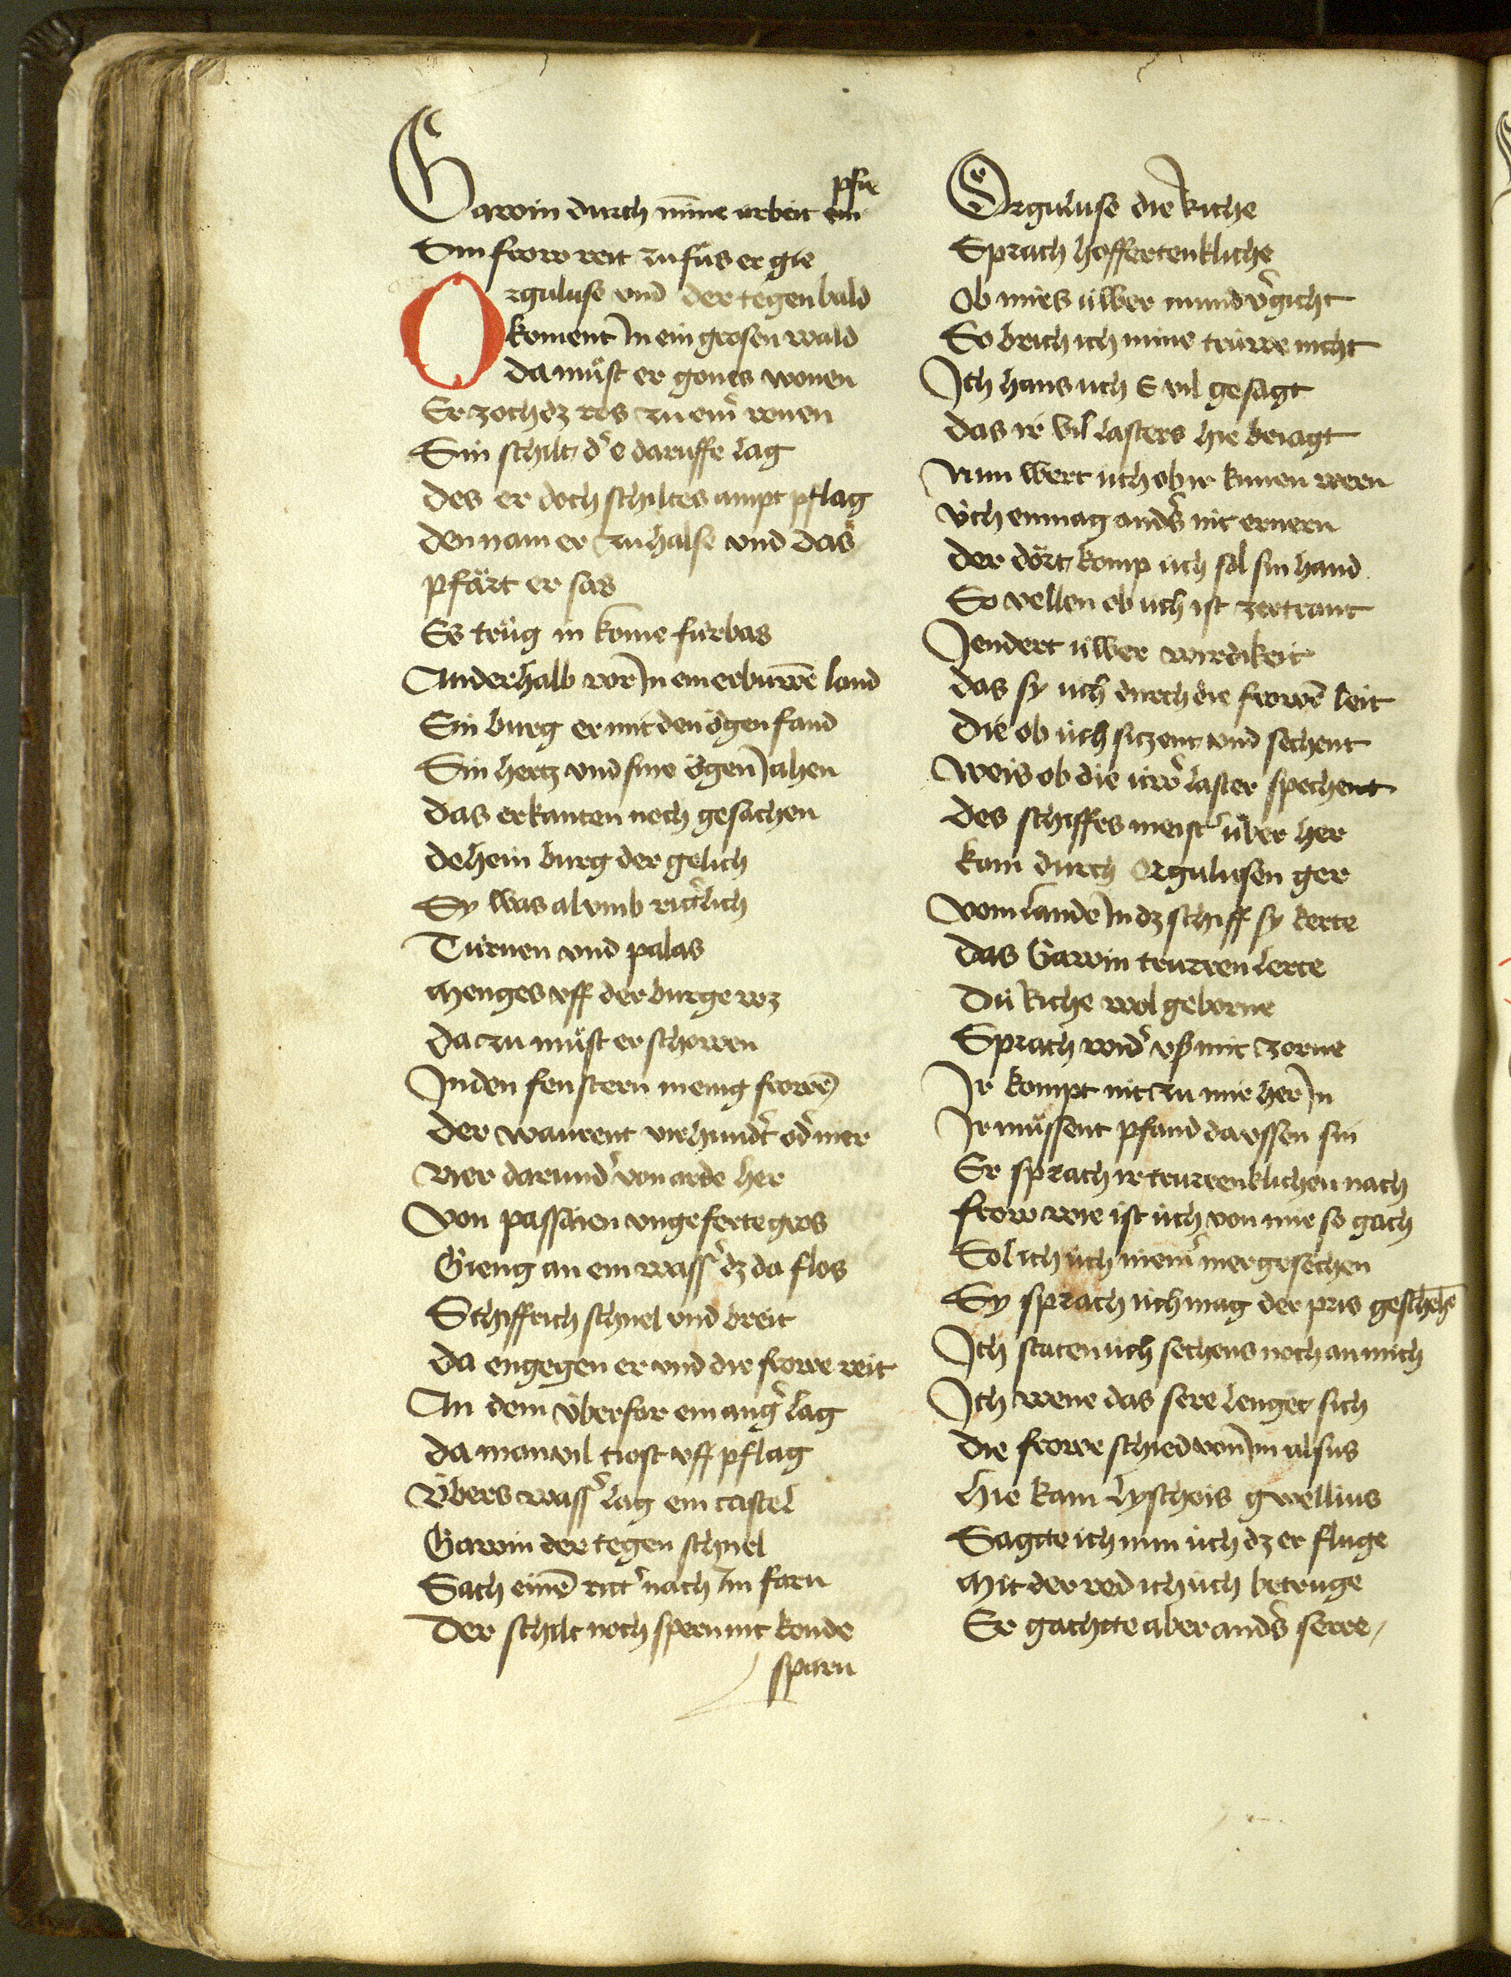 Gawin durch mine arbeit empfie
Sin frow reit zu fůs er gie
Orguluse vnd der tegen bald
koment In ein grosen wald
da můst er gones wonen
Er zoch dz ros zu eim̄ ronen
Sin schilt d' e daruffe lag
des er doch schiltes ampt pflag
den nam er zu halse vnd das
pfärt er sas
Es trůg in kome fürbas
Anderhalb vor In en erbuwē land
Sin burg er mit den ögen fand
Sin hertz vnd sine ögen Iahen
das erkanten noch gesachen
dehein burg der gelich
Sy was al vmb ritt'lich
Türnen vnd palas
menges vff der burge wz
da zu můst er schowen
In den fenstern menig frowē
der warent vierhund't od' mer
vier darund' von arde her
Von passāien vngeferte gros
Gieng an ein wass' dz da flos
Schiffrich schnel vnd breit
da engegen er vnd die frowe reit
An dem überfar ein ang' lag
da man vil tiost vff pflag
übers wass' lag ein castel
Gawin der tegen schnel
Sach einē ritt' nach Im farn
Der schilt noch spern nit konde
sparn
Orguluse die Riche
Sprach hoffertenkliche
Ob mirs üwer mund v'gicht
So brich ich mine trüwe nicht
Ich hans uch E vil gesagt
das ir vil lasters hie beiagt
Nun wert uch ob ir kunen wern
üch enmag and's nit ernern
der dört komp üch sol sin hand
So vellen ob uch ist zertrant
Iendert üwer wirdikeit
das sy uch durch die frowē leit
Die ob üch sizent vnd sechent
Weis ob die üw' laster spechent
des schiffes meist' über her
kam durch Orgulusen ger
vom lande In dz schiff sy kerte
das Gawin truren lerte
Dü Riche wol geborne
Sprach wid' vß mit zorne
Ir kompt nit zu mir her In
Ir müssent pfand da vssen sin
Er sprach ir trurenklichen nach
frow wie ist üch von mir so gach
Sol ich üch niem' mer gesechen
Sy sprach üch mag der pris geschehē
Ich staten üch sechens noch an mich
Ich wene das sere lenget sich
die frowe schied von Im alsus
hie kam lyschois gwellius
Sagtte ich nun üch dz er fluge
mit der red ich üch betruge
Er gachtte aber and's serre